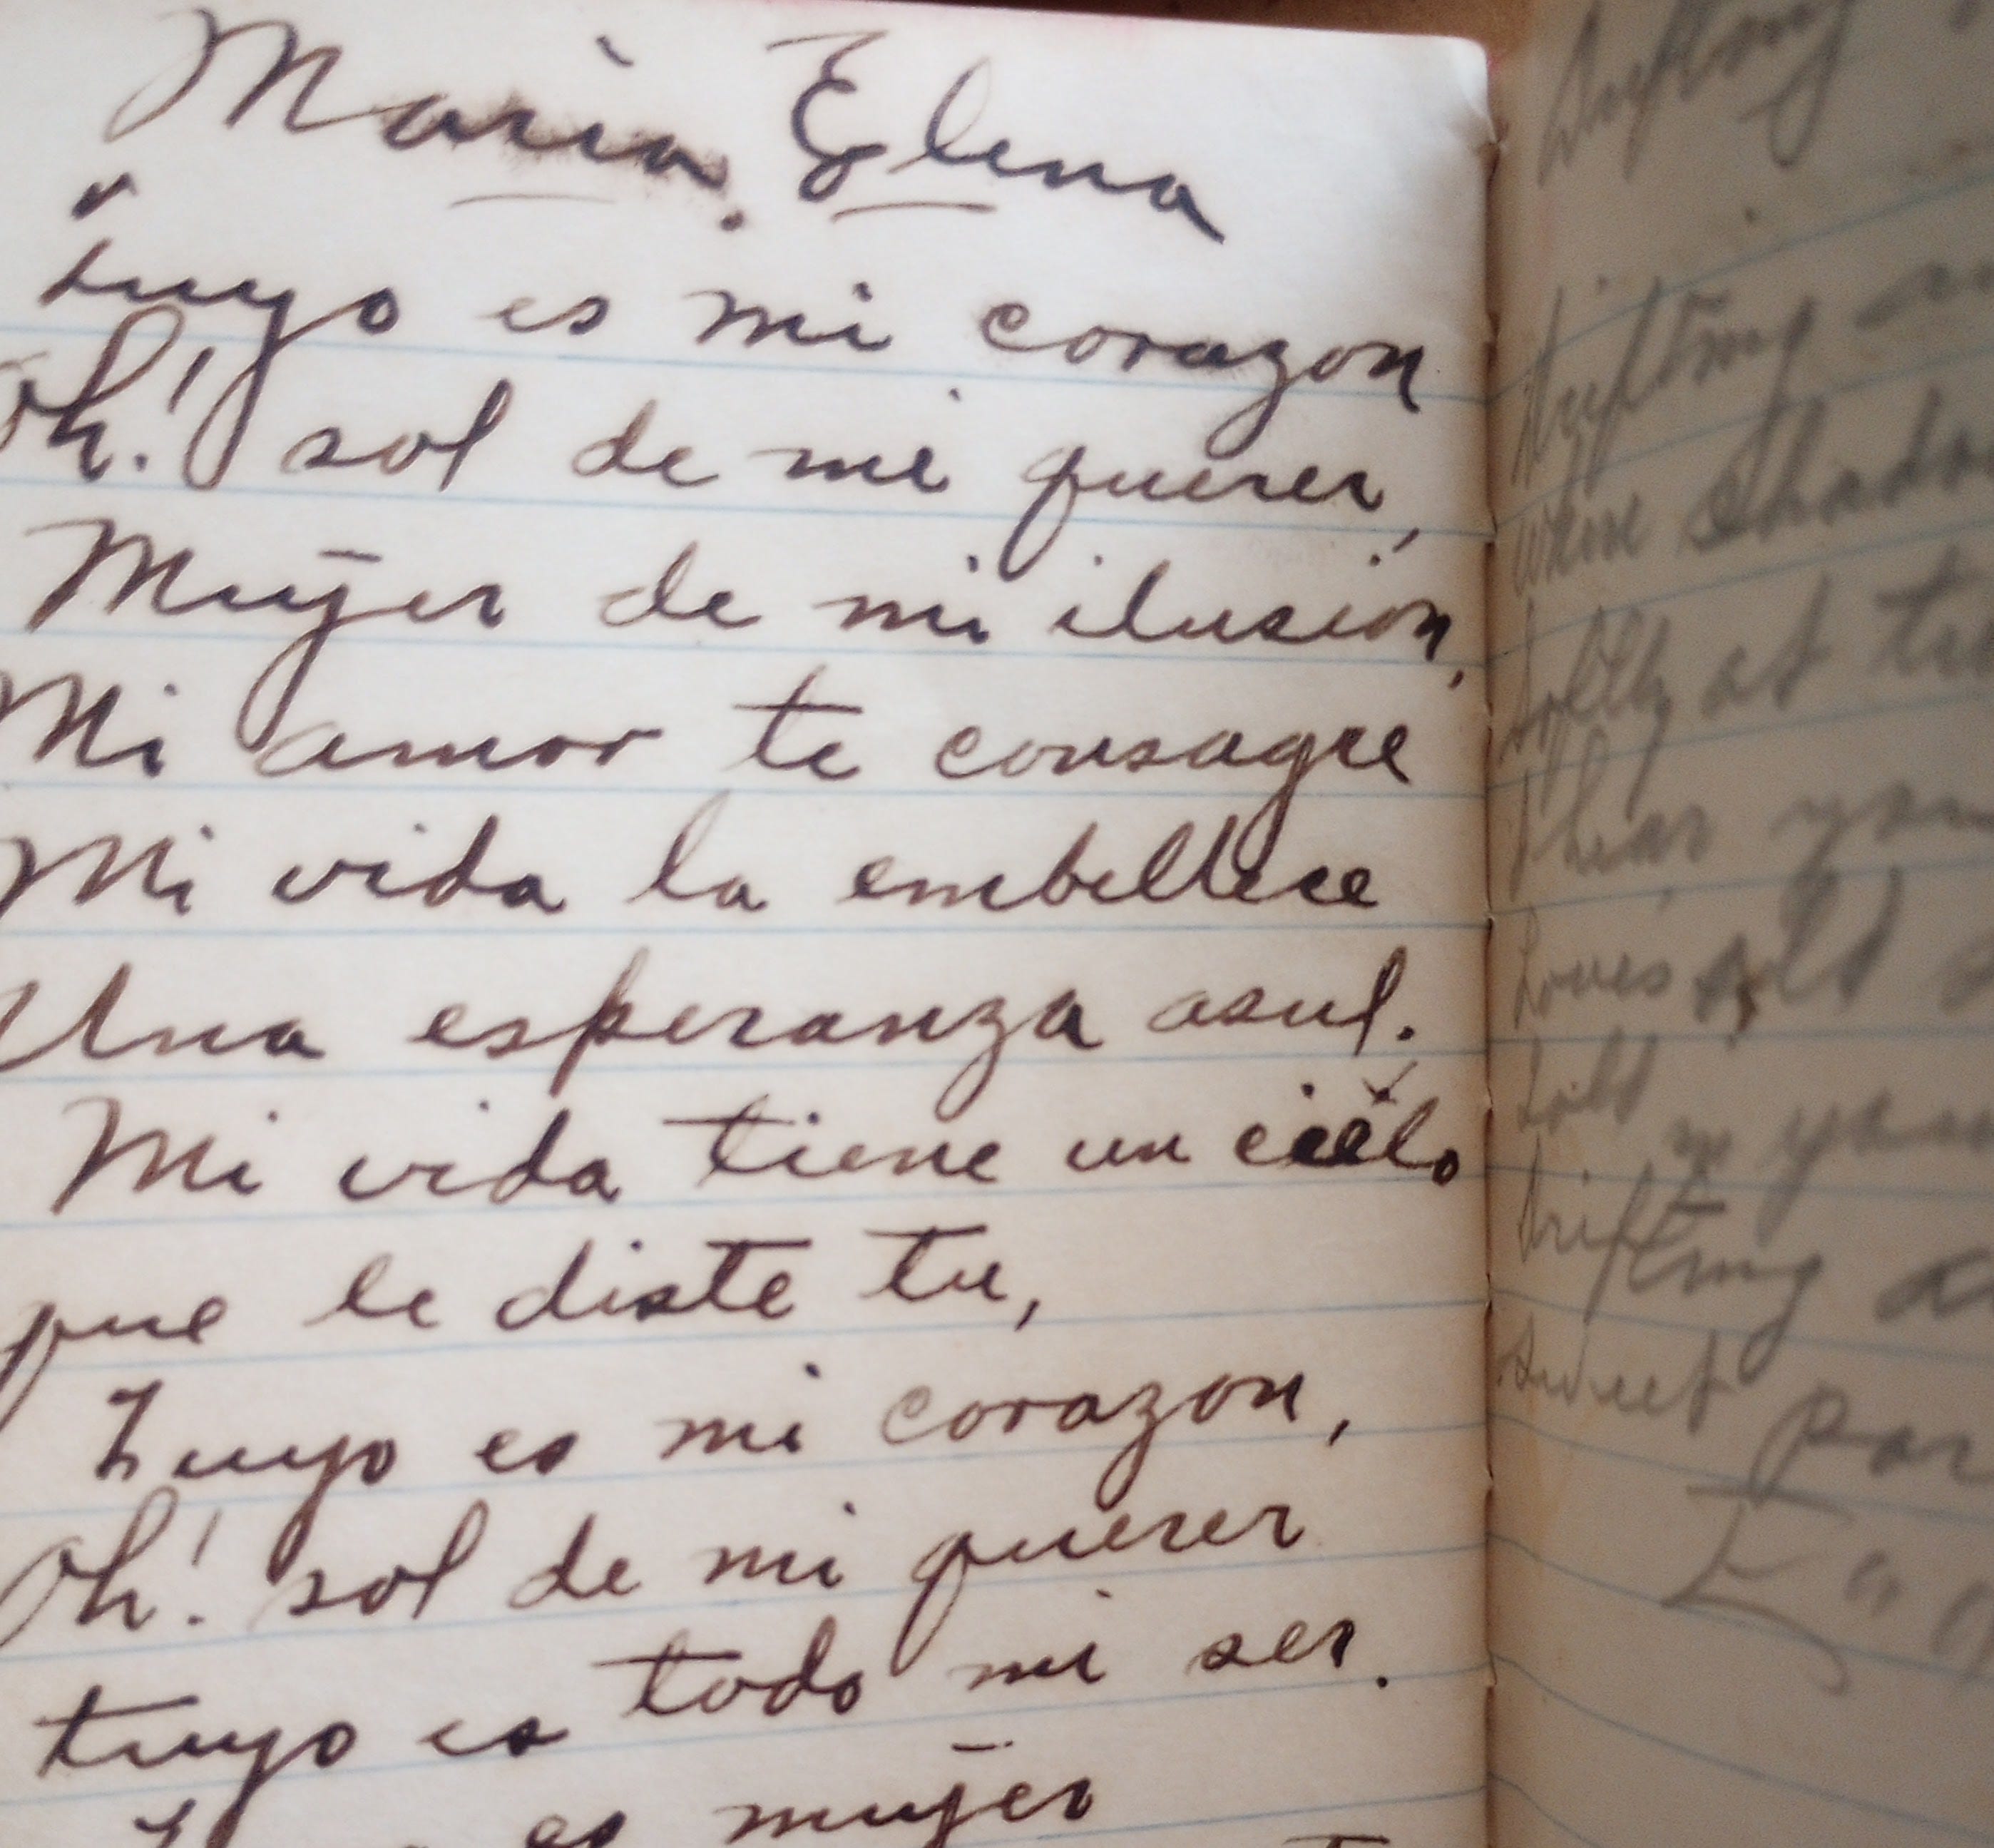 Maria Elena
"
tuyo es mi corazon
Oh! sol de mi querer,
Mujer de mi ilusión,
Mi amor te consagre
Mi vida la embellece
Una esperanza asul.
Mi vida tiene un cielo
que le diste tu,
Tuyo es mi corazon,
Oh! sol de mi querer
tuyo es todo mi ser.
es mujer
Drifting
drifting
where shado
softly at
hear you
Love's old
told
in your
drifting a
sweet par